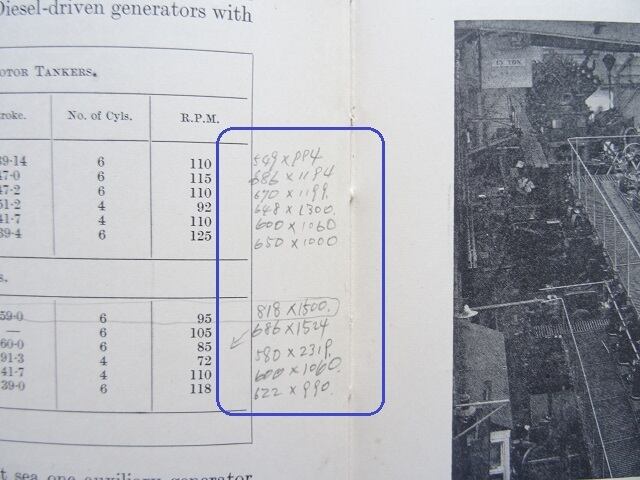 Diesel-driven generators with
OTOR TANKERS.
roke. No. of Cyls. R.P.M.
39·14 6 110 549 × 994
47·0 6 115 686 × 1194
47·2 6 110 670 × 1199.
51·2 4 92 648 × 1300.
41·7 4 110 600 × 1060
39·4 6 125 650 × 1000
s.
59·0 6 95 818 × 1500.
— 6 105 686 × 1524
60·0 6 85
91·3 4 72 580 × 2319.
41·7 4 110 600 × 1060.
39·0 6 118 622 × 990.
t sea one auxiliary generator
15 TON